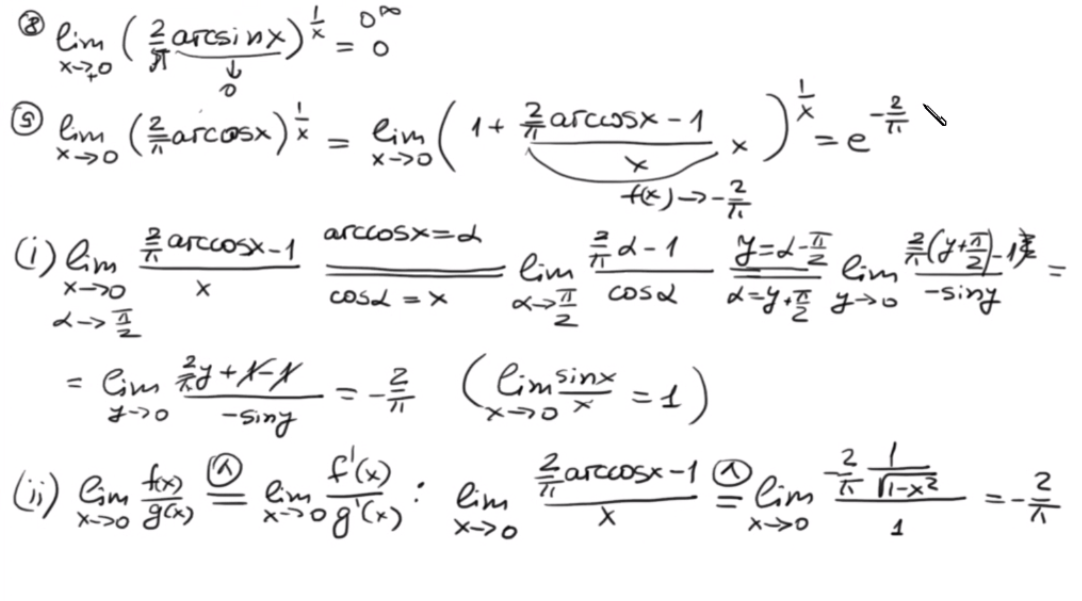 ⑧ lim x→+0 (2/π arcsinx)^(1/x) = 0^∞ = 0
↓ 0
⑨ lim x→0 (2/π arccosx)^(1/x) = lim x→0 (1 + (2/π arccosx − 1)/x · x)^(1/x) = e^(−2/π)
f(x) → −2/π
(i) lim x→0 α→π/2 (2/π arccosx − 1)/x = [arccosx = α, cosα = x] lim α→π/2 (2/π α − 1)/cosα = [y = α − π/2, α = y + π/2] lim y→0 (2/π (y + π/2) − 1)/(−siny) =
= lim y→0 (2/π y + 1 − 1)/(−siny) = −2/π (lim x→0 sinx/x = 1)
(ii) lim x→0 f(x)/g(x) =^(Λ) lim x→0 f'(x)/g'(x) : lim x→0 (2/π arccosx − 1)/x =^(Λ) lim x→0 (−2/π · 1/√(1−x²))/1 = −2/π